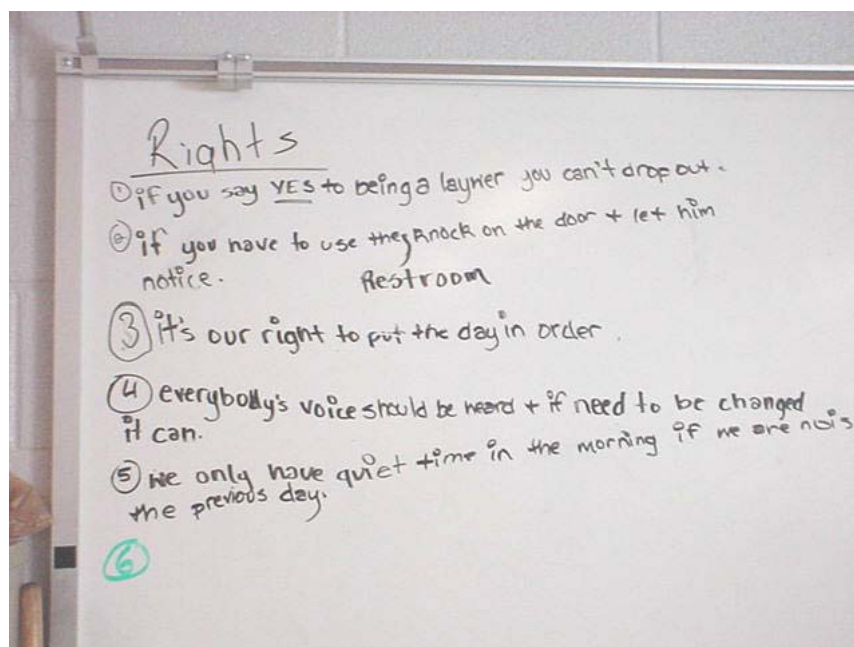 Rights
① if you say YES to being a laywer you can't drop out.
② if you have to use the knock on the door + let him
notice. Restroom
③ it's our right to put the day in order.
④ everybody's voice should be heard + if need to be changed
it can.
⑤ we only have quiet time in the morning if we are nois
the previous day.
⑥